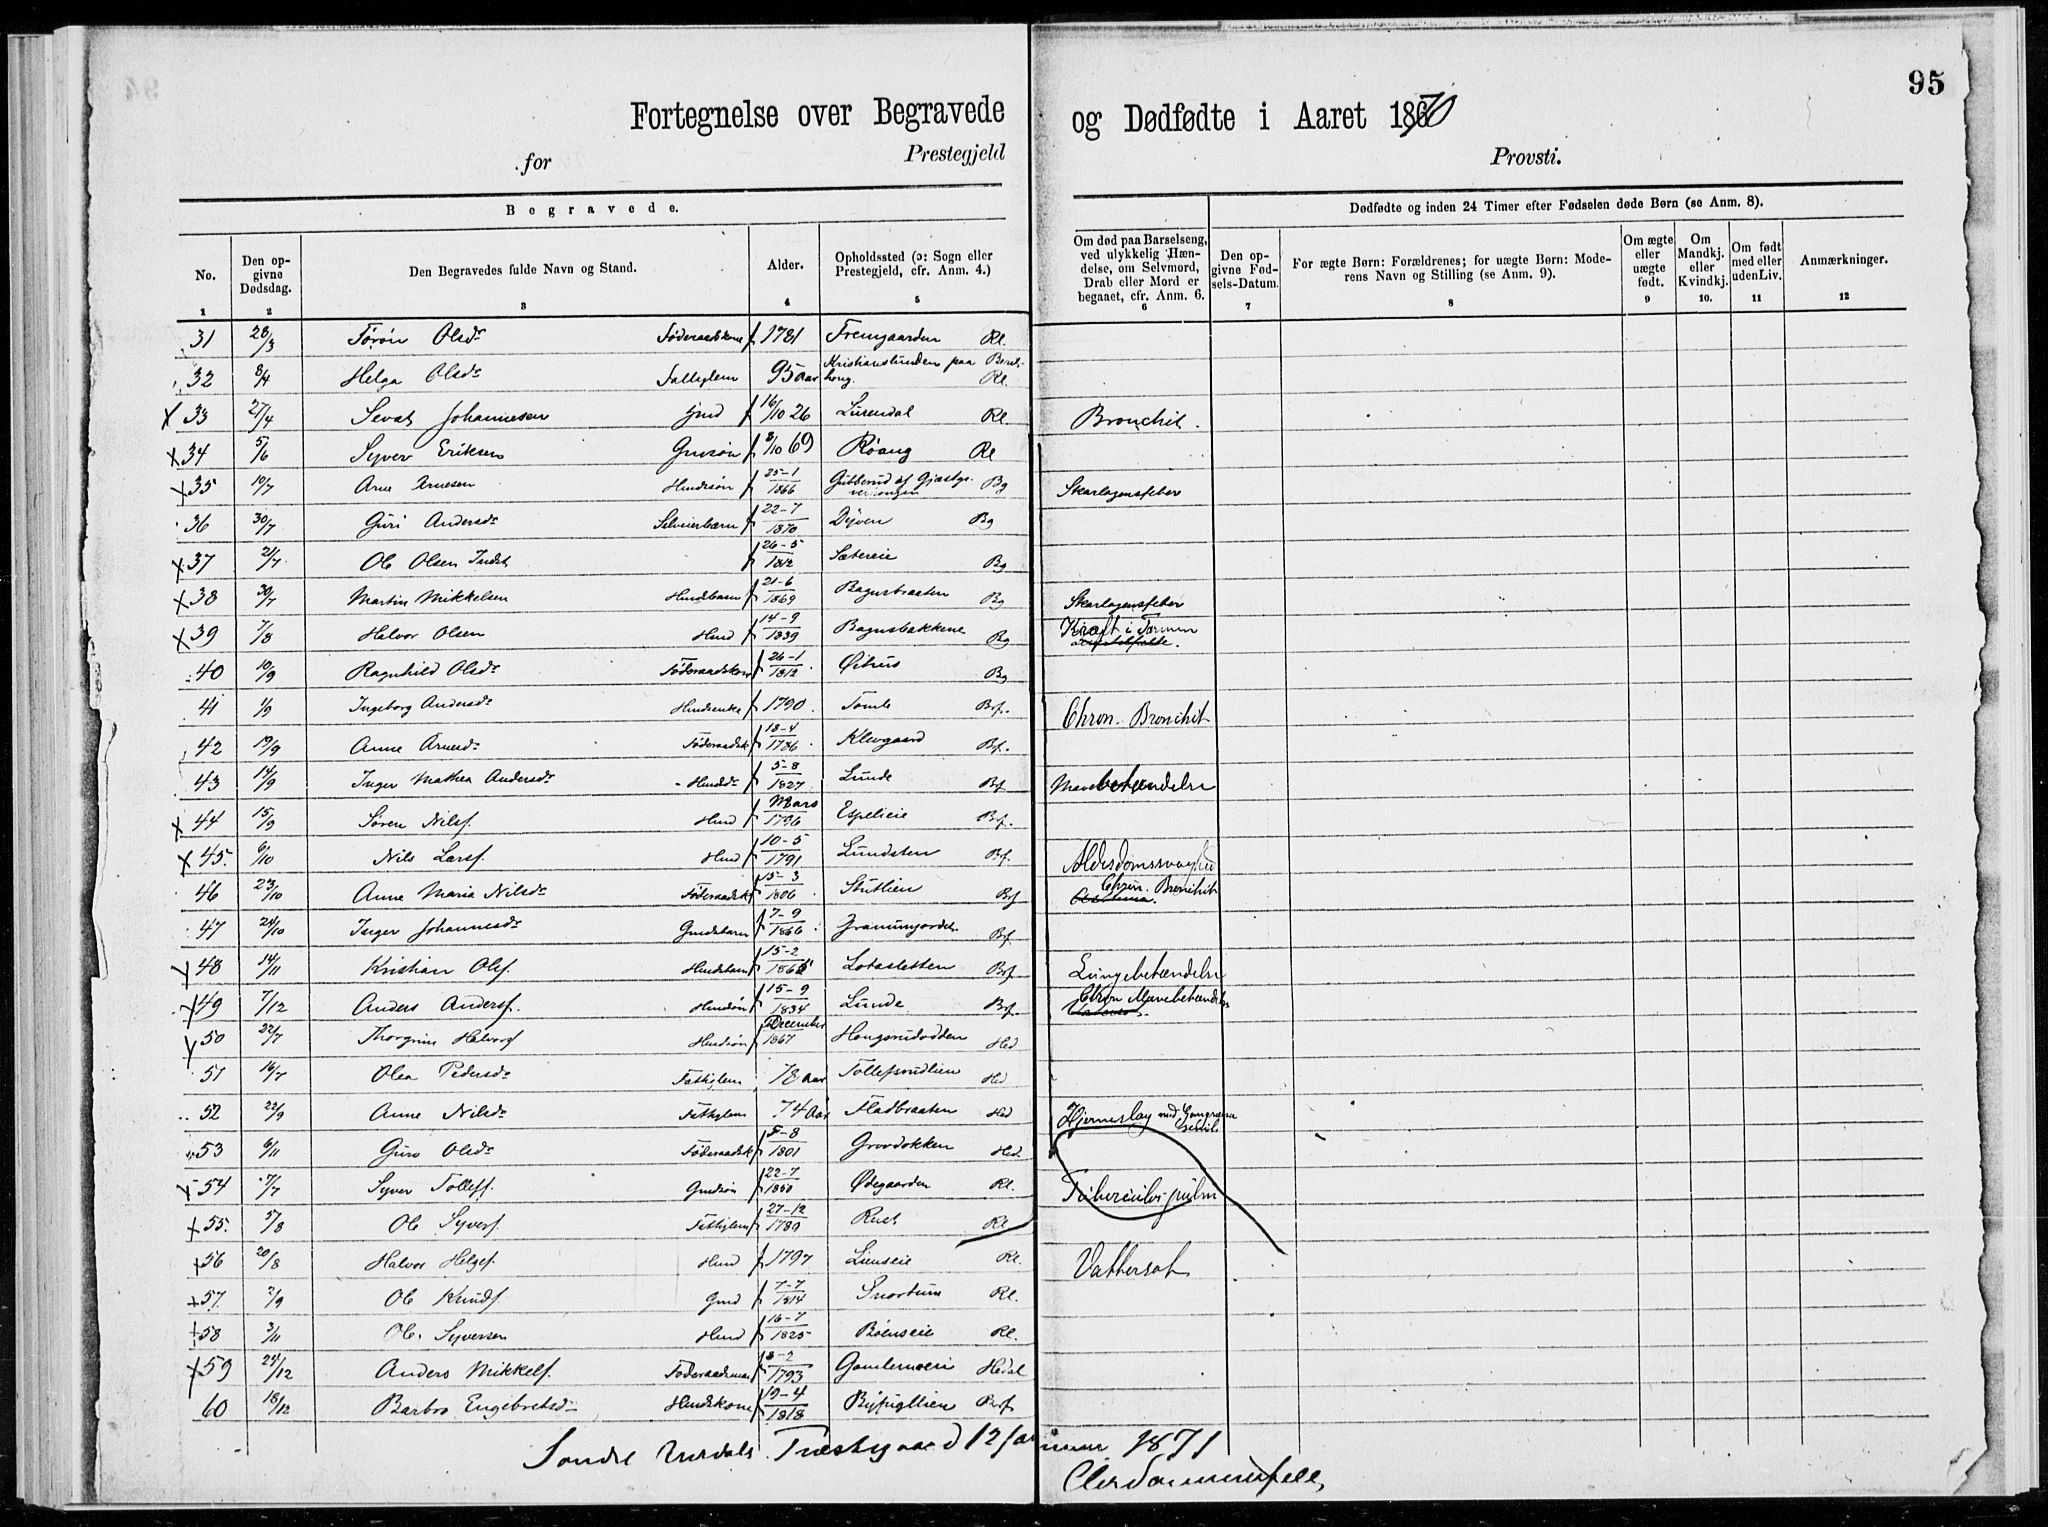 95
Fortegnelse over Begravede og Dødfødte i Aaret 1870
for Prestegjeld Provsti.
Begravede.
Dødfødte og inden 24 Timer efter Fødselen døde Børn (se Anm. 8).
No. Den opgivne Dødsdag. Den Begravedes fulde Navn og Stand. Alder. Opholdssted (ɔ: Sogn eller Prestegjeld, cfr. Anm. 4.) Om død paa Barselseng, ved ulykkelig Hændelse, om Selvmord, Drab eller Mord er begaaet, cfr. Anm. 6. Den opgivne Fødsels-Datum. For ægte Børn: Forældrenes; for uægte Børn: Moderens Navn og Stilling (se Anm. 9). Om ægte eller uægte født. Om Mandkj. eller Kvindkj. Om født med eller uden Liv. Anmærkninger.
1 2 3 4 5 6 7 8 9 10. 11 12
31 28/3 Torøn Olsdr Føderaadskone f 1781 Fremgaarden Rl.
32 8/4 Helga Olsdr Fattiglem 95 aar Kristianslunden paa Rl.
x 33 27/4 Sevat Johannesen Gmd f 16/10 26 Lirendal Rl. Bronchit.
x 34 5/6 Syver Eriksen Gmdsøn f 8/10 69 Røang Rl
x 35 10/7 Arne Arnesen Husmdsøn f 25-1 1866 Gutterud af Bg Skarlagensfeber
36 30/7 Guri Andersdr f 22-7 1870 Dyven Bg
x 37 21/7 Ole Olsen Inderst f 26-5 1812 Sætereie Bg
x 38 30/7 Martin Mikkelsen Husmdbarn f 21-6 1869 Bagnsbraaten Bg Skarlagensfeber
x 39 7/8 Halvor Olsen Husmd f 14-9 1839 Bagnsbakkene Bg Kræft i Tarmen
40 10/9 Ragnhild Olsdr Føderaadskone f 26-1 1812 Bg
41 1/9 Ingeborg Andersdr Husmdsenke f 1790. Tomle Brf. Chron. Bronchit
42 19/9 Anne Arnesdr Føderaadsk f 18-4 1786. Klevgaard Brf.
43 14/9 Inger Mathea Andersdr Husmdsdr f 5-8 1827 Lunde Brf Mavebetændelse
x 44 15/9 Søren Nilsf. Husmd f Mars 1796 Espelieie Brf.
x 45. 6/10 Nils Larsf. Husmd f 10-5 1791 Lundsten Brf. Alderdomssvaghed
46 23/10 Anne Maria Nilsdr Føderaadsk f 15-3 1806. Stutlien Brf Chron. Bronchit Asthma.
47 24/10 Inger Johannesdr Gmdsbarn f 7-9 1866 Brf.
x 48 14/11 Kristian Olsf. Husmdsbarn f 15-2 Lotasletten Brf Lungebetændelse
x 49 7/12 Anders Andersf. Husmdsøn f 15-9 1834 Lunde Brf. Chron Mavebetændelse
x 50 22/7 Thorgrim Halvorsf Husmdsøn f December 1867 Hougsrudodden Hed
51 16/7 Olea Pedersdr Fattiglem 78 aar Tollefsrudlien Hed
52 22/9 Anne Nilsdr Fattiglem 74 Aar Fladbraaten Hed Hjerneslag med
53 6/11 Guro Olsdr Føderaadsk f 5-8 1801 Grovdokken Hed.
x 54 7/7 Syver Tollefs. Gmdsøn f 22-7 1850 Ødegaarden Rl. Tuberculos pulm
x 55. 5/8 Ole Syversf. Fattiglem f 27-12 1789 Rust Rl
x 56 20/8 Halvor Helgef. Husmd f 1797 Lienseie Rl. Vattersot
x 57. 2/9 Ole Knudsf. Gmd f 7-7 1814 Snortum Rl.
x 58 3/11 Ole Syversen Husmd f 16-7 1825 Bøenseie Rl.
x 59 24/12 Anders Mikkelsf. Føderaadsman f 3-2 1793 Gamlemoen Hedal
60 18/12 Barbro Engebretsdr Husmdskone f 19-4 1818 Brf
Søndre Aurdals Præstegaard 12 Januar 1871